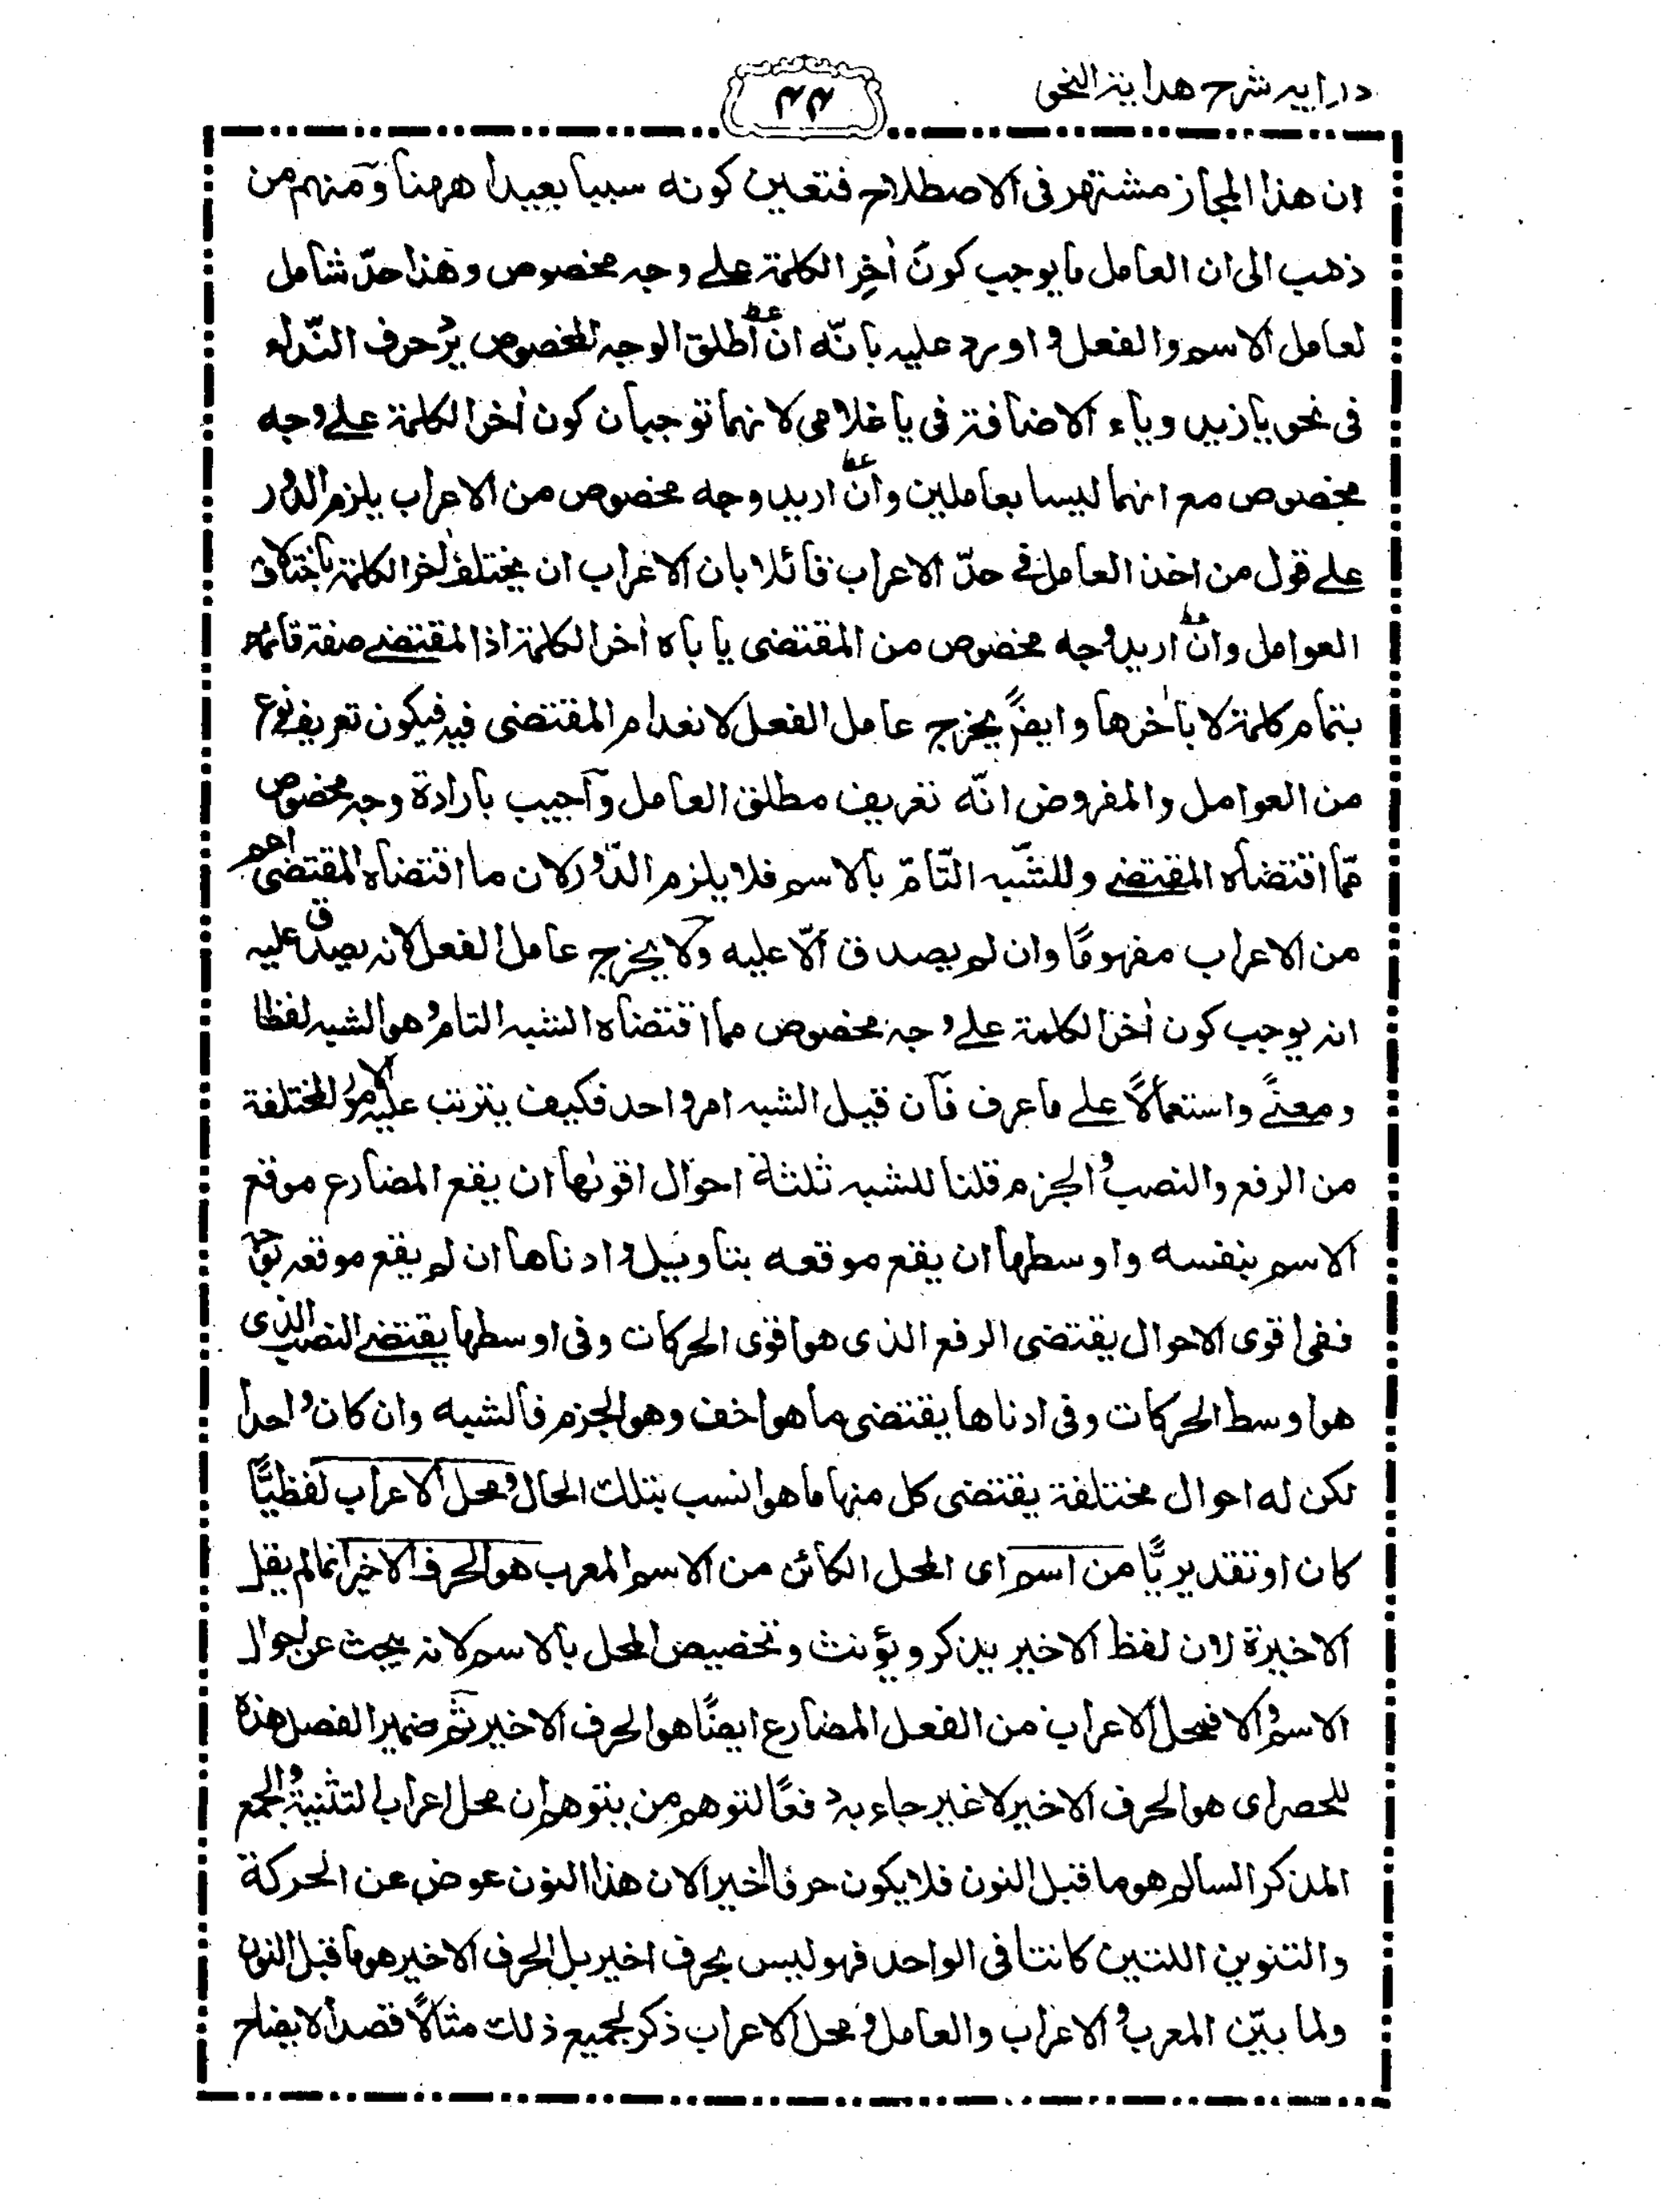 درايه شرح هداية النحو
٤٤
ان هذا المجاز مشتهر فى الاصطلاح فتعين كونه سببا بعيدا ههنا ومنهم من
ذهب الى ان العامل ما يوجب كون اٰخر الكلمة على وجه مخصوص وهذا حدّ شامل
لعامل الاسم والفعل واورد عليه بانّه ان اطلق الوجه المخصوص يرد حرف النّداء
فى نحو يا زيد وياء الاضافة فى يا غلامى لانهما توجبان كون اٰخر الكلمة على وجه
مخصوص مع انهما ليسا بعاملين وان اريد وجه مخصوص من الاعراب يلزم الدور
على قول من اخذ العامل فى حدّ الاعراب قائلا بان الاعراب ان يختلف اٰخر الكلمة باختلاف
العوامل وان اريد وجه مخصوص من المقتضى ياباه اٰخر الكلمة اذ المقتضى صفة قائمة
بتمام كلمة لا باٰخرها وايضًا يخرج عامل الفعل لانعدام المقتضى فيه فيكون تعريف نوع
من العوامل والمفروض انّه تعريف مطلق العامل واجيب بارادة وجه مخصوص
ممّا اقتضاه المقتضى وللشّبه التّامّ بالاسم فلا يلزم الدّور لان ما اقتضاه المقتضى اعم
من الاعراب مفهومًا وان لم يصدق الّا عليه ولا يخرج عامل الفعل لانه يصدق عليه
انه يوجب كون اٰخر الكلمة على وجه مخصوص مما اقتضاه الشبه التام وهو الشبه لفظا
ومعنًى واستعمالًا على ما عرف فان قيل الشبه امر واحد فكيف يترتب عليه الامور المختلفة
من الرفع والنصب والجزم قلنا للشبه ثلثة احوال اقوٰها ان يقع المضارع موقع
الاسم بنفسه واوسطها ان يقع موقعه بتاويل وادناها ان لم يقع موقعه بوجه
ففى اقوى الاحوال يقتضى الرفع الذى هو اقوى الحركات وفى اوسطها يقتضى النصب الذى
هو اوسط الحركات وفى ادناها يقتضى ما هو اخف وهو الجزم فالشبه وان كان واحدا
لكن له احوال مختلفة يقتضى كل منها ما هو انسب بتلك الحال ومحل الاعراب لفظيًّا
كان او تقديريًّا من اسم اى المحل الكائن من الاسم المعرب هو الحرف الاخير انما لم يقل
الاخيرة لان لفظ الاخير يذكر ويؤنث وتخصيص المحل بالاسم لانه يبحث عن احوال
الاسم والا فمحل الاعراب من الفعل المضارع ايضًا هو الحرف الاخير ثم ضمير الفصل هذه
للحصر اى هو الحرف الاخير لا غير جاء به دفعًا لتوهم من يتوهم ان محل اعراب التثنية والجمع
المذكر السالم هو ما قبل النون فلا يكون حرفا اخيرا لان هذا النون عوض عن الحركة
والتنوين اللتين كانتا فى الواحد فهو ليس بحرف اخير بل الحرف الاخير هو ما قبل النون
ولما بيّن المعرب والاعراب والعامل ومحل الاعراب ذكر لجميع ذلك مثالًا قصد الايضاح